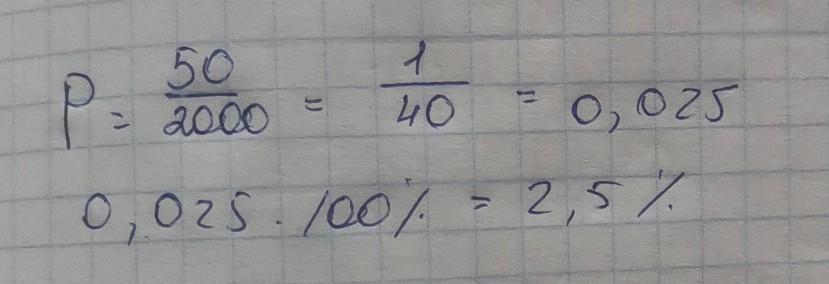 P = 50/2000 = 1/40 = 0,025
0,025 · 100% = 2,5%